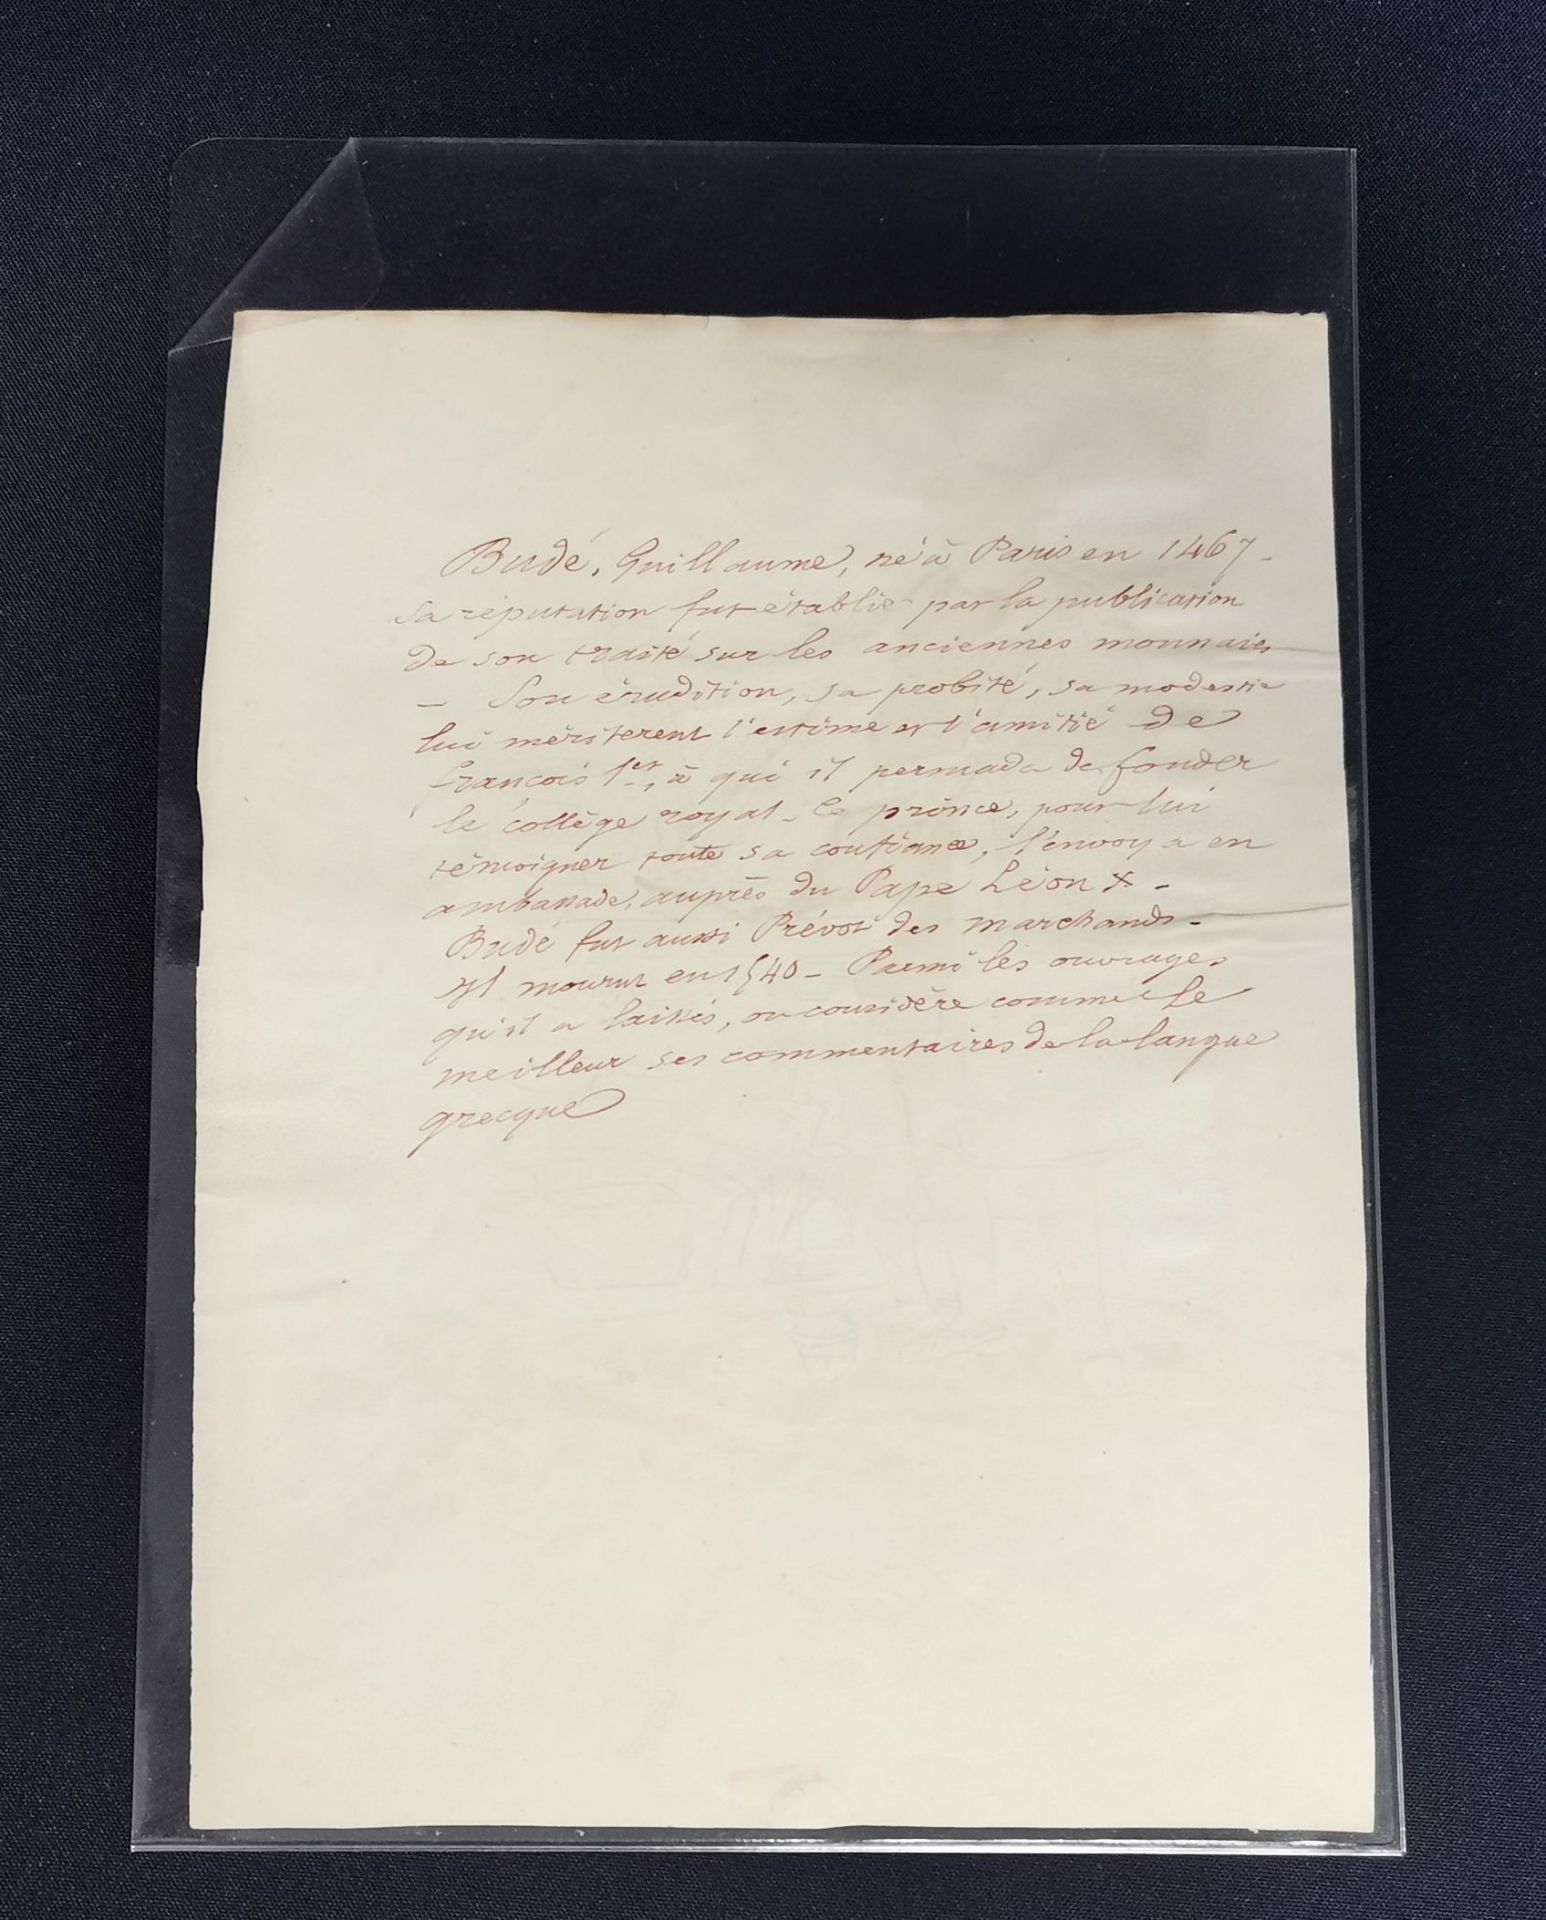 Budé, Guillaume, né à Paris en 1467 -
sa réputation fut établie par la publication
de son traité sur les anciennes monnaies
- Son érudition, sa probité, sa modestie
lui méritèrent l'estime et l'amitié de
François 1er, à qui il persuada de fonder
le collège royal - le prince, pour lui
témoigner toute sa confiance, l'envoya en
ambassade, auprès du Pape Léon X -
Budé fut aussi Prévot des marchands -
Il mourut en 1540 - Parmi les ouvrages
qu'il a laissés, on considère comme le
meilleur ses commentaires de la langue
grecque